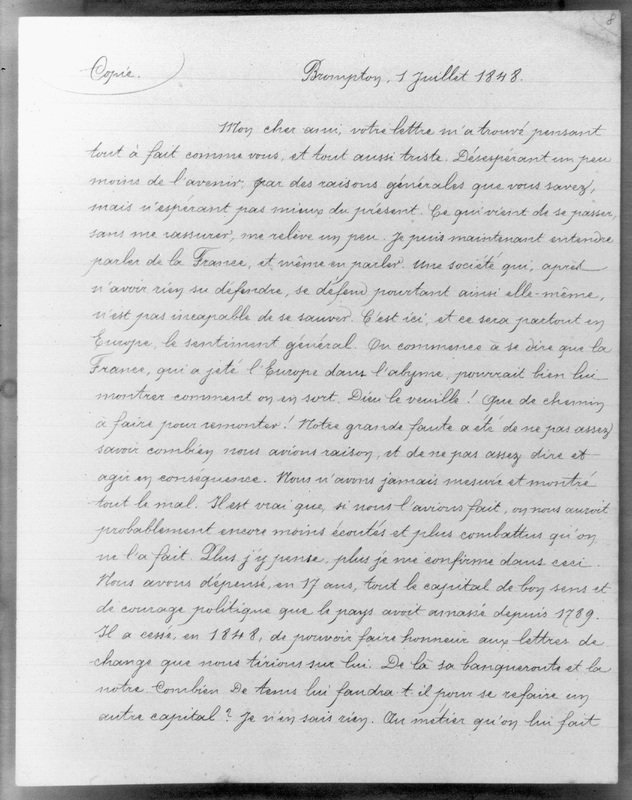 8
Copie.
Brompton, 1 Juillet 1848.
Mon cher ami, votre lettre m'a trouvé pensant
tout à fait comme vous, et tout aussi triste. Désespérant un peu
moins de l'avenir, par des raisons générales que vous savez,
mais n'espérant pas mieux du présent. Ce qui vient de se passer,
sans me rassurer, me relève un peu. Je puis maintenant entendre
parler de la France, et même en parler. Une société qui, après
n'avoir rien su défendre, se défend pourtant ainsi elle-même,
n'est pas incapable de se sauver. C'est ici, et ce sera partout en
Europe, le sentiment général. On commence à se dire que la
France, qui a jété l'Europe dans l'abyme, pourrait bien lui
montrer comment on en sort. Dieu le veuille ! Que de chemin
à faire pour remonter ! Notre grande faute a été de ne pas assez
savoir combien nous avions raison, et de ne pas assez dire et
agir en conséquence. Nous n'avons jamais mesuré et montré
tout le mal. Il est vrai que, si nous l'avions fait, on nous auroit
probablement encore moins écoutés et plus combattus qu'on
ne l'a fait. Plus j'y pense, plus je me confirme dans ceci.
Nous avons dépensé, en 17 ans, tout le capital de bon sens et
de courage politique que le pays avoit amassé depuis 1789.
Il a cessé, en 1848, de pouvoir faire honneur aux lettres de
change que nous tirions sur lui. De là sa banqueroute et la
notre. Combien de tems lui faudra-t-il pour se refaire un
autre capital ? Je n'en sais rien. Au métier qu'on lui fait